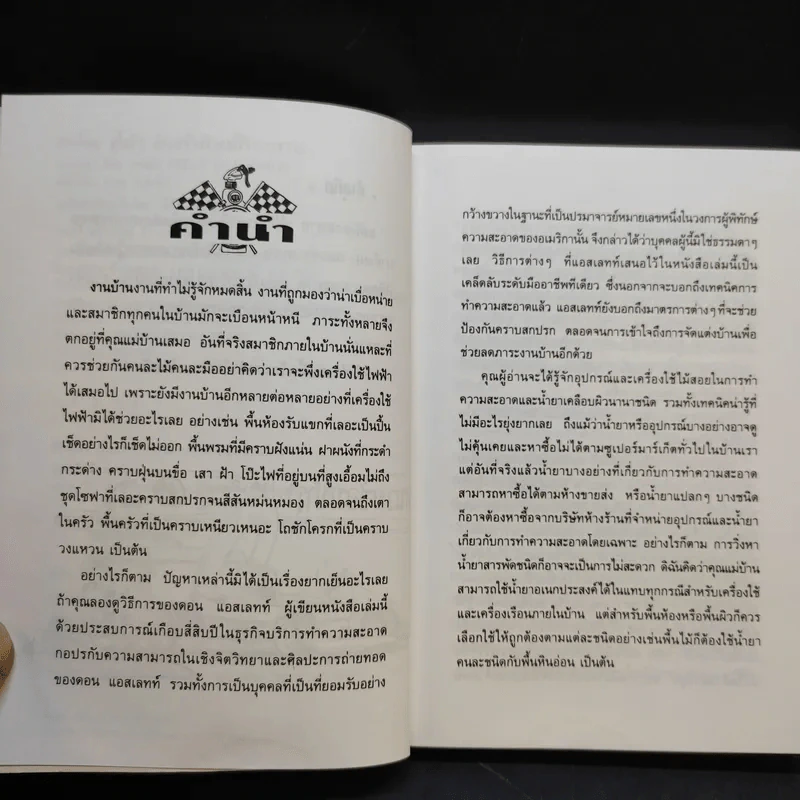 คำนำ
งานบ้านงานที่ทำไม่รู้จักหมดสิ้น งานที่ถูกมองว่าน่าเบื่อหน่าย
และสมาชิกทุกคนในบ้านมักจะเบือนหน้าหนี ภาระทั้งหลายจึง
ตกอยู่ที่คุณแม่บ้านเสมอ อันที่จริงสมาชิกภายในบ้านนั่นแหละที่
ควรช่วยกันคนละไม้คนละมืออย่าคิดว่าเราจะพึ่งเครื่องใช้ไฟฟ้า
ได้เสมอไป เพราะยังมีงานบ้านอีกหลายต่อหลายอย่างที่เครื่องใช้
ไฟฟ้ามิได้ช่วยอะไรเลย อย่างเช่น พื้นห้องรับแขกที่เลอะเป็นปื้น
เช็ดอย่างไรก็เช็ดไม่ออก พื้นพรมที่มีคราบฝังแน่น ฝาผนังที่กระดำ
กระด่าง คราบฝุ่นบนขื่อ เสา ฝ้า โป๊ะไฟที่อยู่บนที่สูงเอื้อมไม่ถึง
ชุดโซฟาที่เลอะคราบสกปรกจนสีสันหม่นหมอง ตลอดจนถึงเตา
ในครัว พื้นครัวที่เป็นคราบเหนียวเหนอะ โถชักโครกที่เป็นคราบ
วงแหวน เป็นต้น
อย่างไรก็ตาม ปัญหาเหล่านี้มิได้เป็นเรื่องยากเย็นอะไรเลย
ถ้าคุณลองดูวิธีการของดอน แอสเลทท์ ผู้เขียนหนังสือเล่มนี้
ด้วยประสบการณ์เกือบสี่สิบปีในธุรกิจบริการทำความสะอาด
กอปรกับความสามารถในเชิงจิตวิทยาและศิลปะการถ่ายทอด
ของดอน แอสเลทท์ รวมทั้งการเป็นบุคคลที่เป็นที่ยอมรับอย่าง
กว้างขวางในฐานะที่เป็นปรมาจารย์หมายเลขหนึ่งในวงการผู้พิทักษ์
ความสะอาดของอเมริกานั้น จึงกล่าวได้ว่าบุคคลผู้นี้มิใช่ธรรมดาๆ
เลย วิธีการต่างๆ ที่แอสเลทท์เสนอไว้ในหนังสือเล่มนี้เป็น
เคล็ดลับระดับมืออาชีพทีเดียว ซึ่งนอกจากจะบอกถึงเทคนิคการ
ทำความสะอาดแล้ว แอสเลทท์ยังบอกถึงมาตรการต่างๆที่จะช่วย
ป้องกันคราบสกปรก ตลอดจนการเข้าใจถึงการจัดแต่งบ้านเพื่อ
ช่วยลดภาระงานบ้านอีกด้วย
คุณผู้อ่านจะได้รู้จักอุปกรณ์และเครื่องใช้ไม้สอยในการทำ
ความสะอาดและน้ำยาเคลือบผิวนานาชนิด รวมทั้งเทคนิคน่ารู้ที่
ไม่มีอะไรยุ่งยากเลย ถึงแม้ว่าน้ำยาหรืออุปกรณ์บางอย่างอาจดู
ไม่คุ้นเคยและหาซื้อไม่ได้ตามซูเปอร์มาร์เก็ตทั่วไปในบ้านเรา
แต่อันที่จริงแล้วน้ำยาบางอย่างที่เกี่ยวกับการทำความสะอาด
สามารถหาซื้อได้ตามห้างขายส่ง หรือน้ำยาแปลกๆ บางชนิด
ก็อาจต้องหาซื้อจากบริษัทห้างร้านที่จำหน่ายอุปกรณ์และน้ำยา
เกี่ยวกับการทำความสะอาดโดยเฉพาะ อย่างไรก็ตาม การวิ่งหา
น้ำยาสารพัดชนิดก็อาจจะเป็นการไม่สะดวก ดิฉันคิดว่าคุณแม่บ้าน
สามารถใช้น้ำยาอเนกประสงค์ได้ในแทบทุกกรณีสำหรับเครื่องใช้
และเครื่องเรือนภายในบ้าน แต่สำหรับพื้นห้องหรือพื้นผิวก็ควร
เลือกใช้ให้ถูกต้องตามแต่ละชนิดอย่างเช่นพื้นไม้ก็ต้องใช้น้ำยา
คนละชนิดกับพื้นหินอ่อน เป็นต้น